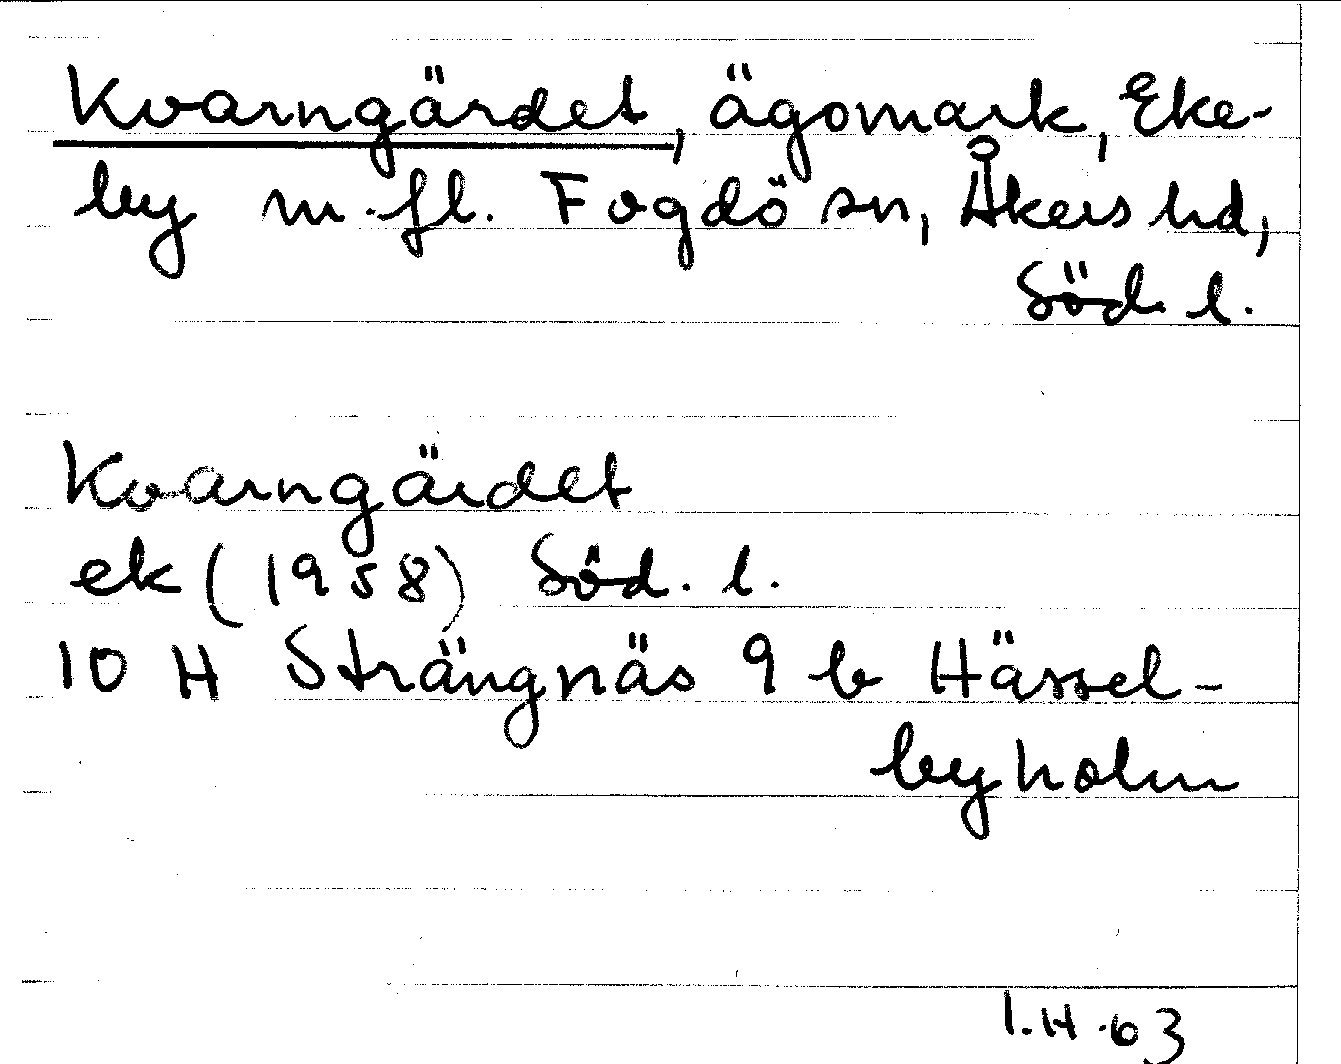 Kvarngärdet, ägomark, Eke-
by m.fl. Fogdö sn, Åkers hd,
Söd. l.
Kvarngärdet
ek (1958) Söd. l.
10 H Strängnäs 9 b Hässel-
byholm
I.H.63